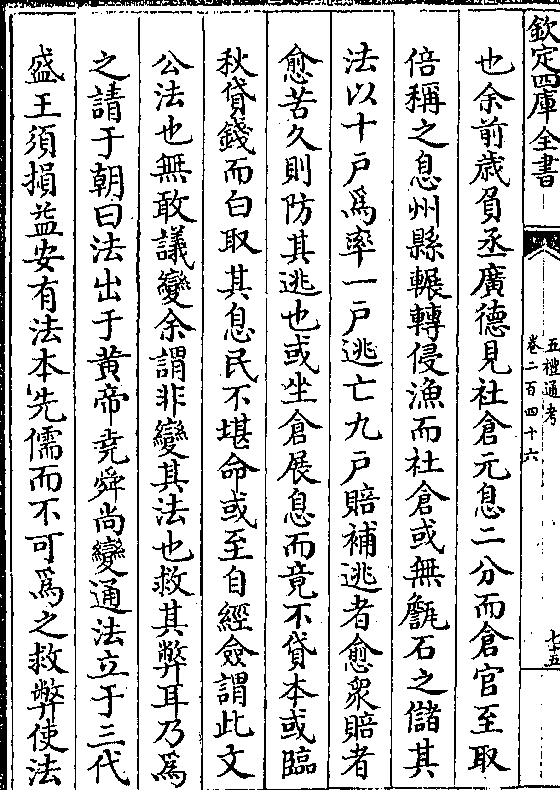 欽定四庫全書
五禮通考
卷二百四十六
七五
也余前歲負丞廣德見社倉元息二分而倉官至取
倍稱之息州縣輾轉侵漁而社倉或無甔石之儲其
法以十戶為率一戶逃亡九戶賠補逃者愈衆賠者
愈苦久則防其逃也或坐倉展息而竟不貸本或臨
秋貸錢而白取其息民不堪命或至自經僉謂此文
公法也無敢議變余謂非變其法也救其弊耳乃為
之請于朝曰法出于黄帝堯舜尚變通法立于三代
盛王須損益安有法本先儒而不可為之救弊使法